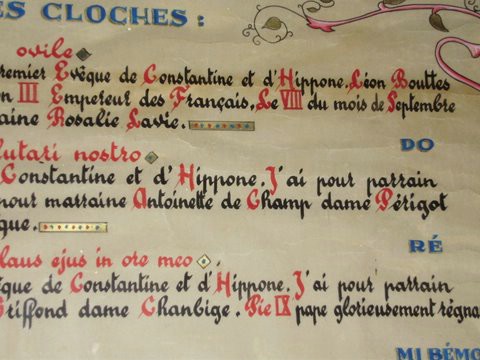 ES CLOCHES :
ovile
remier Evêque de Constantine et d'Hippone. Léon Bouttes
on III Empereur des Français. Le VIII du mois de Septembre
aine Rosalie Lavie.
DO
lutari nostro
Constantine et d'Hippone. J'ai pour parrain
pour marraine Antoinette de Champ dame Périgot
que.
RÉ
laus ejus in ore meo
que de Constantine et d'Hippone. J'ai pour parrain
Griffond dame Chanbige. Pie IX pape glorieusement régna
MI BÉMO